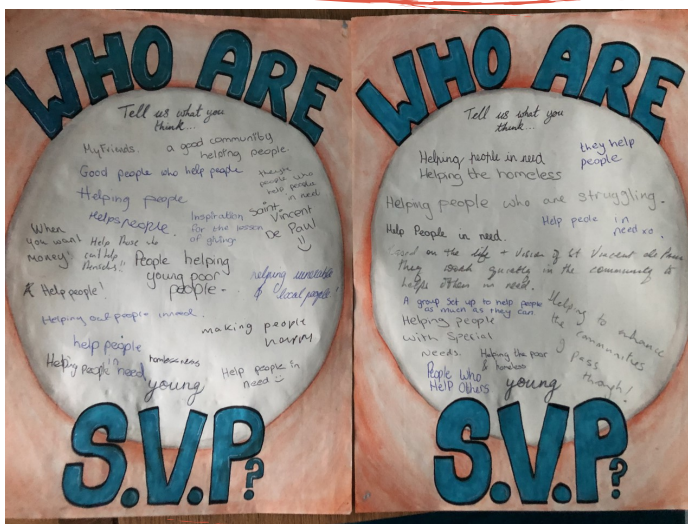 WHO ARE
Tell us what you
think...
My Friends.
a good community
helping people.
Good people who help people
people who
help people
in need
Helping people
Helps people.
Inspiration
for the season
of giving
Saint
Vincent
De Paul
When
you want
money!
Help those who
can't help
themselves!!
People helping
young poor
people.
helping vulnerable
& local people!
Help people!
Helping out people in need.
making people
happy
help people
Helping People in need
homelessness
young
Help people in
need
S.V.P?
WHO ARE
Tell us what you
think...
Helping people in need
Helping the homeless
they help
people
Helping people who are struggling.
Help People in need.
Help people in
need xo.
Based on the life + vision of St Vincent de Paul
They work quietly in the community to
help others in need.
A group set up to help people
as much as they can
Helping people
with Special
needs.
Helping the poor
& homeless
Helping to enhance
the communities
pass
through!
People Who
Help Others
young
S.V.P?